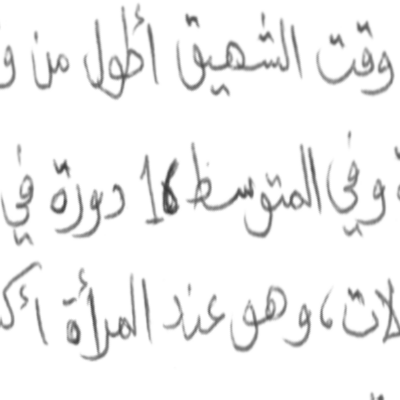 وقت الشهيق أطول من
وفي المتوسط 16 دورة في
لات، وهو عند المرأة